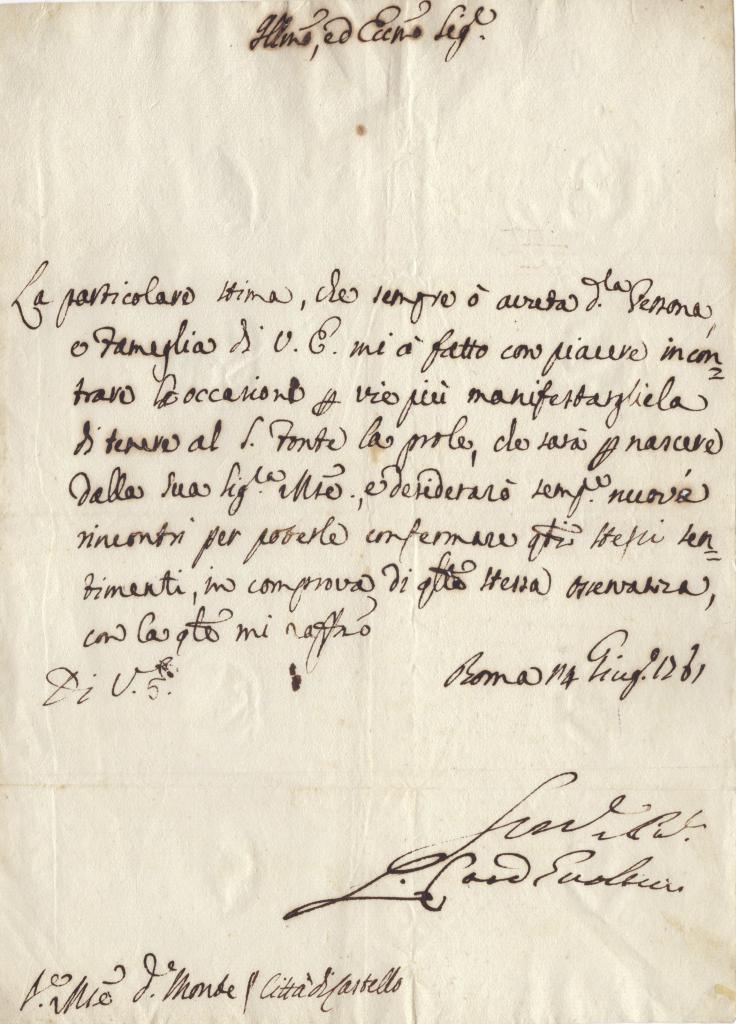 Illmo, ed Eccmo Sigr.
La particolare stima, che sempre ò avuta d.la Persona,
e Fameglia di V. E. mi à fatto con piacere incon=
trare l'occasione p vie più manifestargliela
di tenere al S. Fonte la prole, che sarà p nascere
dalla sua Sig.ra Mse., e desiderarò semp.e nuovi
rincontri per poterle confermare qti stessi sen=
timenti, in comprova di qta stessa osservanza,
con la qle mi raffro
Di V. E.
Roma 14 Giug.o 1761
Card
Mse d.l Monte // Città di Castello